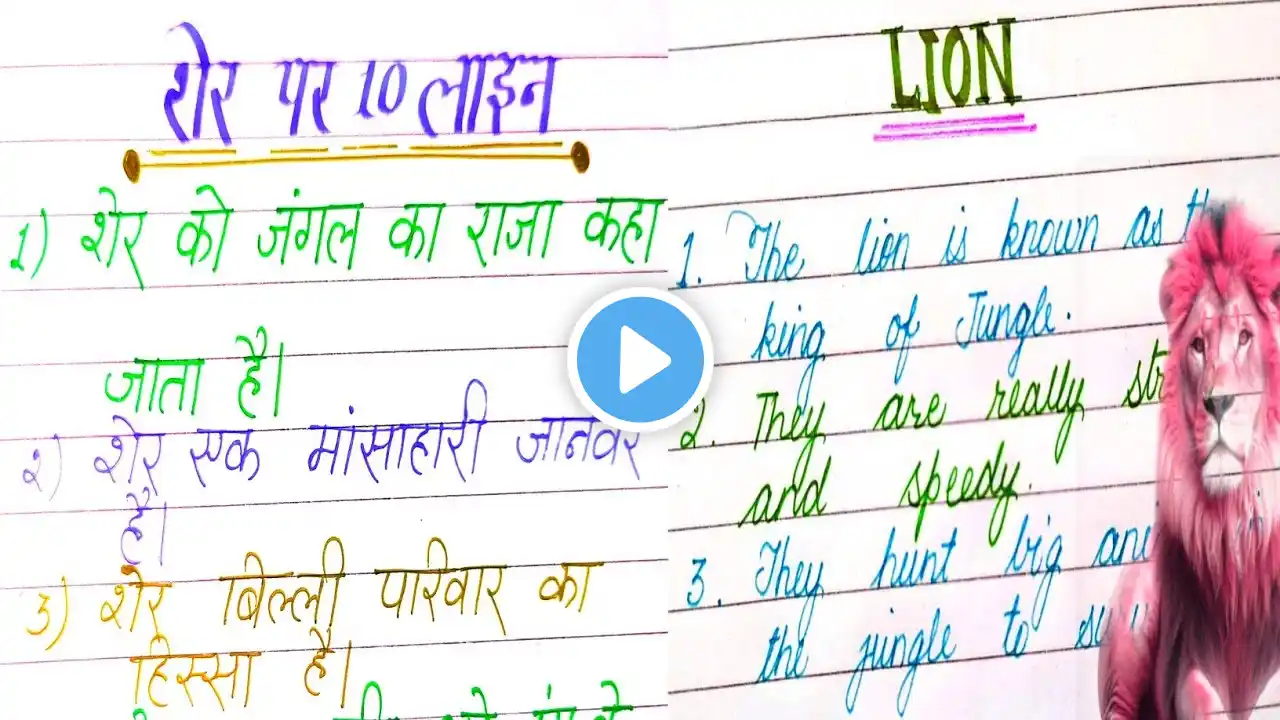 शेर पर 10 लाइन
1) शेर को जंगल का राजा कहा
जाता है।
२) शेर एक मांसाहारी जानवर
है।
3) शेर बिल्ली परिवार का
हिस्सा है।
LION
1. The lion is known as
king of Jungle.
2. They are really
and speedy.
3. They hunt big
the jungle to